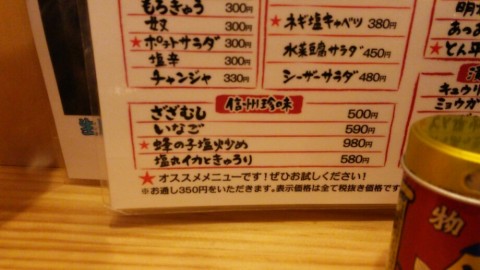 もろきゅう 300円
奴 300円
★ポテトサラダ 300円
塩辛 300円
チャンジャ 330円
★ネギ塩キャベツ 380円
水菜豆腐サラダ 450円
シーザーサラダ 480円
★とん平
キュウリ
ミョウガ
信州珍味
ざざむし 500円
いなご 590円
★蜂の子塩炒め 980円
塩丸イカときゅうり 580円
★オススメメニューです!ぜひお試しください!
※お通し350円をいただきます。表示価格は全て税抜き価格です
物